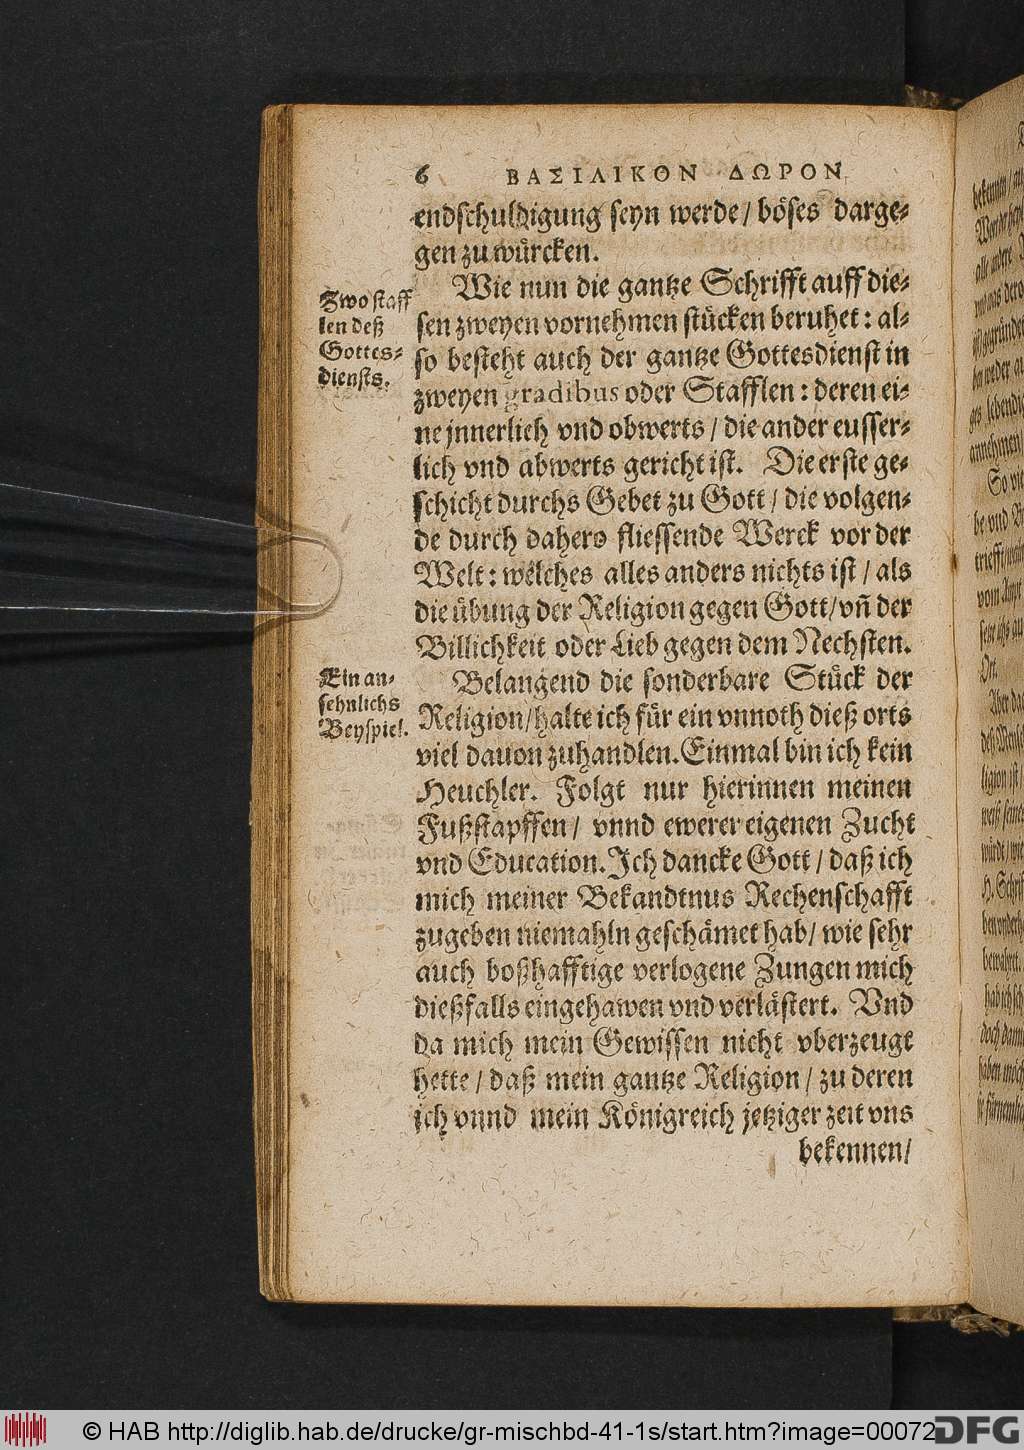 6 ΒΑΣΙΛΙΚΟΝ ΔΩΡΟΝ
endschuldigung seyn werde / böses darge-
gen zu würcken.
Wie nun die gantze Schrifft auff die-
sen zweyen vornehmen stücken beruhet : al-
so besteht auch der gantze Gottesdienst in
zweyen gradibus oder Stafflen : deren ei-
ne jnnerlich vnd obwerts / die ander eusser-
lich vnd abwerts gericht ist. Die erste ge-
schicht durchs Gebet zu Gott / die volgen-
de durch dahero fliessende Werck vor der
Welt : welches alles anders nichts ist / als
die übung der Religion gegen Gott / vñ der
Billichkeit oder Lieb gegen dem Nechsten.
Belangend die sonderbare Stück der
Religion / halte ich für ein vnnoth dieß orts
viel dauon zuhandlen. Einmal bin ich kein
Heuchler. Folgt nur hierinnen meinen
Fußstapffen / vnnd ewerer eigenen Zucht
vnd Education. Ich dancke Gott / daß ich
mich meiner Bekandtnus Rechenschafft
zugeben niemahln geschämet hab / wie sehr
auch boßhafftige verlogene Zungen mich
dießfalls eingehawen vnd verlästert. Vnd
da mich mein Gewissen nicht vberzeugt
hette / daß mein gantze Religion / zu deren
ich vnnd mein Königreich jetziger zeit vns
bekennen /
Zwo staff
len deß
Gottes-
diensts.
Ein an-
sehnlichs
Beyspiel.
© HAB http://diglib.hab.de/drucke/gr-mischbd-41-1s/start.htm?image=00072
DFG